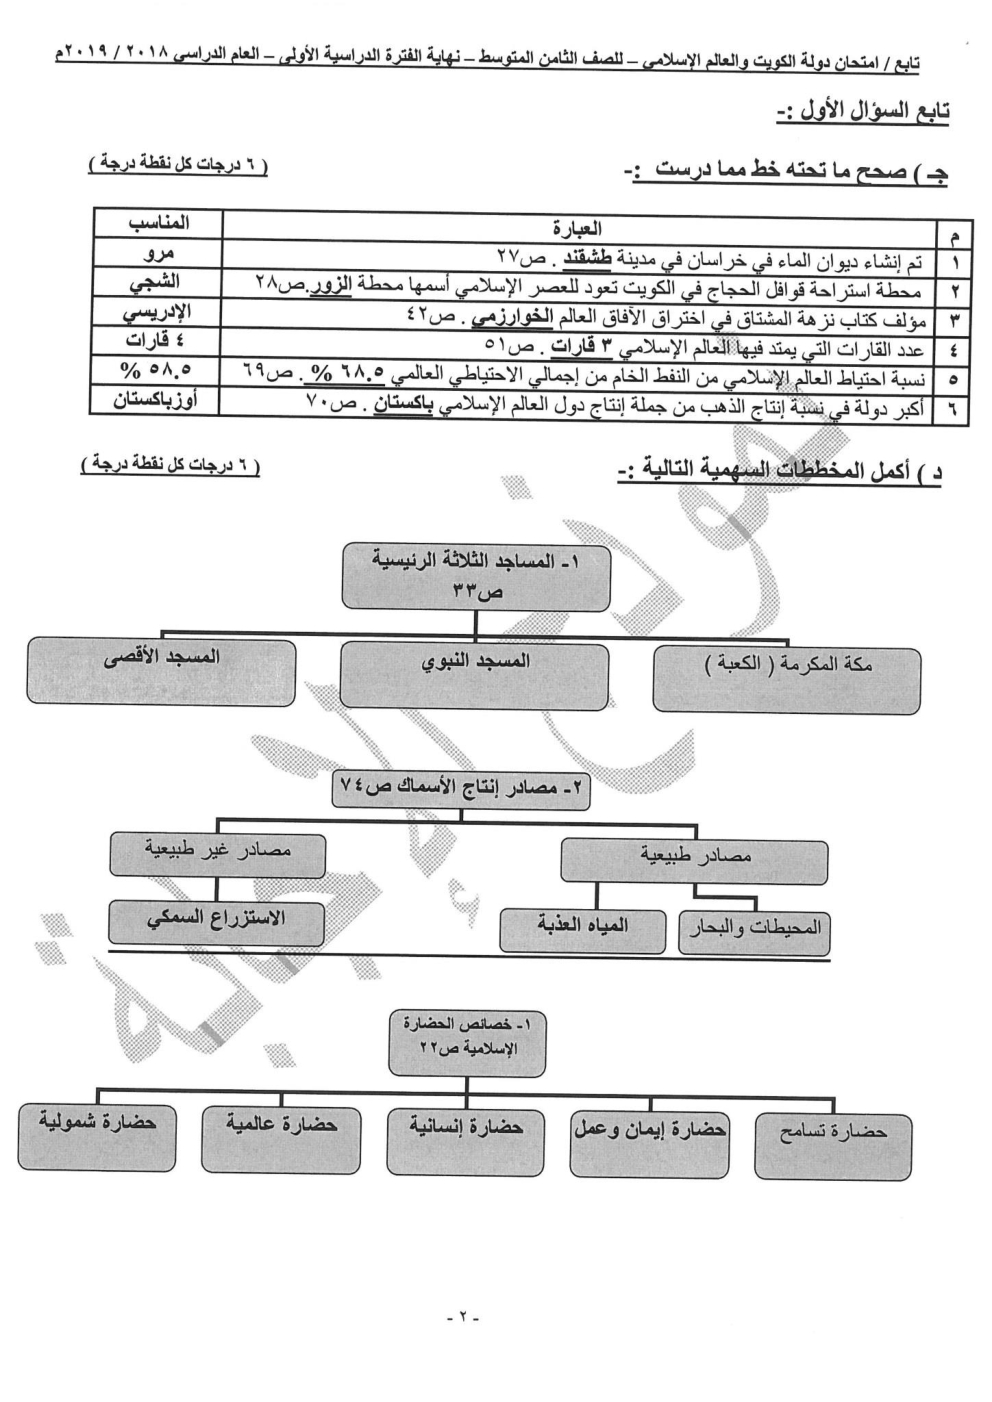 تابع / امتحان دولة الكويت والعالم الإسلامي – للصف الثامن المتوسط – نهاية الفترة الدراسية الأولى – العام الدراسي ٢٠١٨ / ٢٠١٩م
تابع السؤال الأول :-
جـ ) صحح ما تحته خط مما درست :- ( ٦ درجات كل نقطة درجة )
م العبارة المناسب
١ تم إنشاء ديوان الماء في خراسان في مدينة طشقند . ص٢٧ مرو
٢ محطة استراحة قوافل الحجاج في الكويت تعود للعصر الإسلامي أسمها محطة الزور.ص٢٨ الشجي
٣ مؤلف كتاب نزهة المشتاق في اختراق الآفاق العالم الخوارزمي . ص٤٢ الإدريسي
٤ عدد القارات التي يمتد فيها العالم الإسلامي ٣ قارات . ص٥١ ٤ قارات
٥ نسبة احتياط العالم الإسلامي من النفط الخام من إجمالي الاحتياطي العالمي ٦٨.٥ % . ص٦٩ ٥٨.٥ %
٦ أكبر دولة في نسبة إنتاج الذهب من جملة إنتاج دول العالم الإسلامي باكستان . ص٧٠ أوزباكستان
د ) أكمل المخططات السهمية التالية :- ( ٦ درجات كل نقطة درجة )
١- المساجد الثلاثة الرئيسية
ص٣٣
مكة المكرمة ( الكعبة ) المسجد النبوي المسجد الأقصى
٢- مصادر إنتاج الأسماك ص٧٤
مصادر طبيعية مصادر غير طبيعية
المحيطات والبحار المياه العذبة الاستزراع السمكي
١- خصائص الحضارة
الإسلامية ص٢٢
حضارة تسامح حضارة إيمان وعمل حضارة إنسانية حضارة عالمية حضارة شمولية
- ٢ -
نموذج إجابة